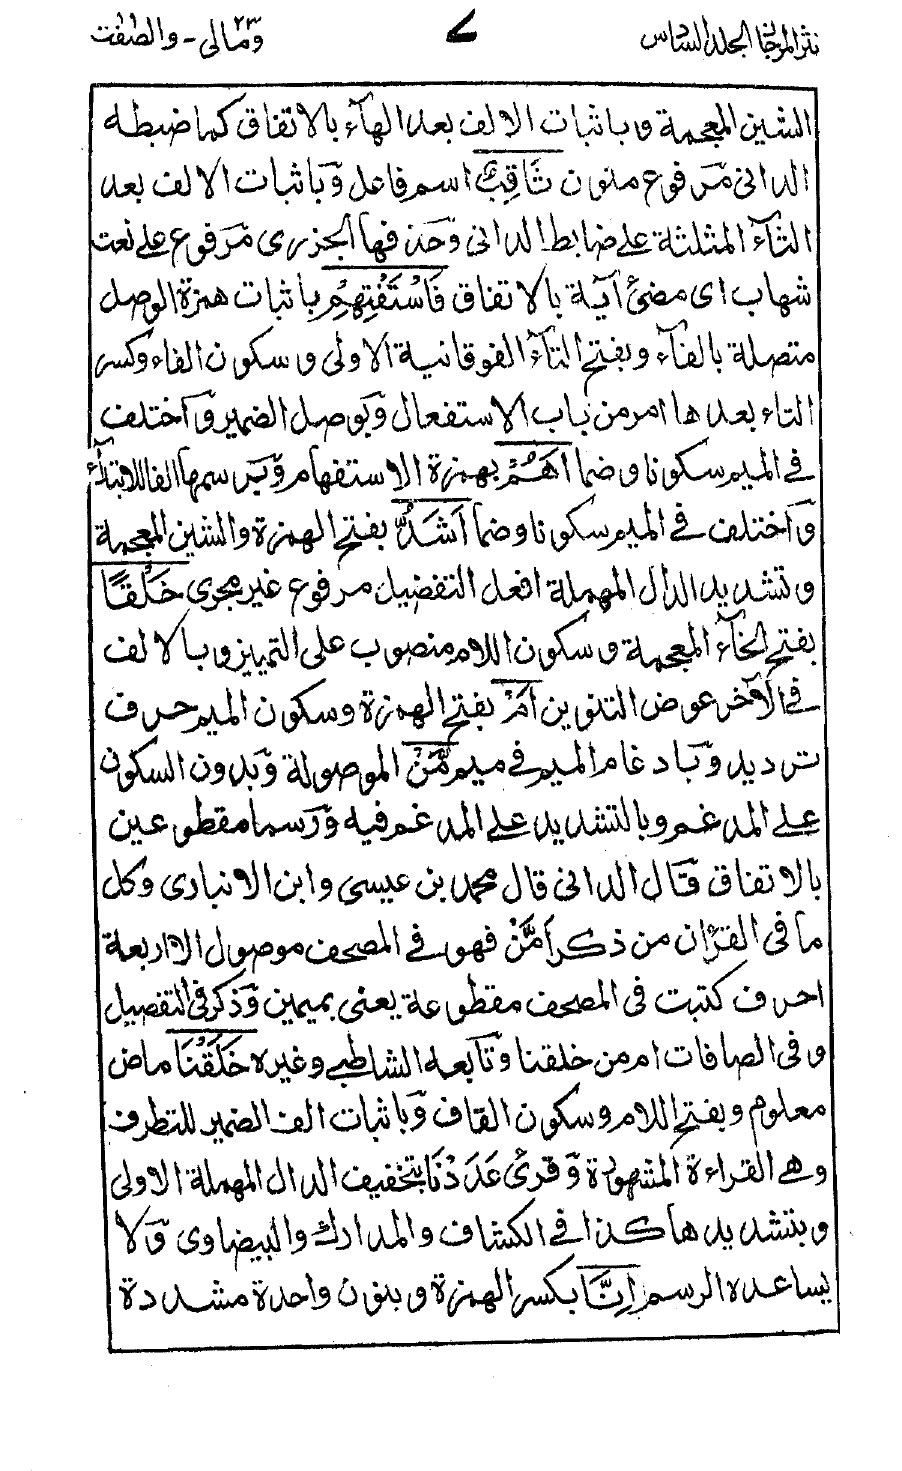 نثر المرجان المجلد السادس
٧
ومالى ٢٣ - والصّٰفّٰت
الشين المعجمة وباثبات الالف بعد الهآء بالاتفاق كما ضبطه
الدانى مَرفوع منون ثَاقِبٌ اسم فاعل وَباثبات الالف بعد
الثآء المثلثة على ضابط الدانى وَحذفها الجزرى مَرفوع على نعت
شهاب اى مضئ آية بالاتفاق فَاسْتَفْتِهِمْ باثبات همزة الوصل
متصلة بالفآء وبفتح التآء الفوقانية الاولى وسكون الفاء وكسر
التاء بعدها امر من باب الاستفعال وَبوصل الضمير وَاختلف
فى الميم سكونا وضما اَهُمْ بهمزة الاستفهام وَيرسمها الفا للابتدآء
وَاختلف فى الميم سكونا وضما اَشَدُّ بفتح الهمزة والشين المعجمة
وتشديد الدال المهملة افعل التفضيل مرفوع غير مجرى خَلْقًا
بفتح الخآء المعجمة وسكون اللام منصوب على التمييز وبالالف
فى الآخر عوض التنوين اَمْ بفتح الهمزة وسكون الميم حرف
ترديد وَبادغام الميم فى ميم مَّنْ الموصولة وَبدون السكون
على المدغم وبالتشديد على المدغم فيه وَرسما مقطوعين
بالاتفاق قَال الدانى قال محمد بن عيسى وابن الانبارى وكل
ما فى القرْان من ذكر اَمَّنْ فهو فى المصحف موصول الا اربعة
احرف كتبت فى المصحف مقطوعة يعنى بميمين وَذكر فى التفصيل
وفى الصافات ام من خلقنا وتَابعه الشاطبى وغيره خَلَقْنَا ماض
معلوم وبفتح اللام وسكون القاف وَباثبات الف الضمير للتطرف
وهى القراءة المشهورة وَقرئ عَدَدْنَا بتخفيف الدال المهملة الاولى
وبتشديدها كذا فى الكشاف والمدارك والبيضاوى وَلا
يساعده الرسم اِنَّا بكسر الهمزة وبنون واحدة مشددة